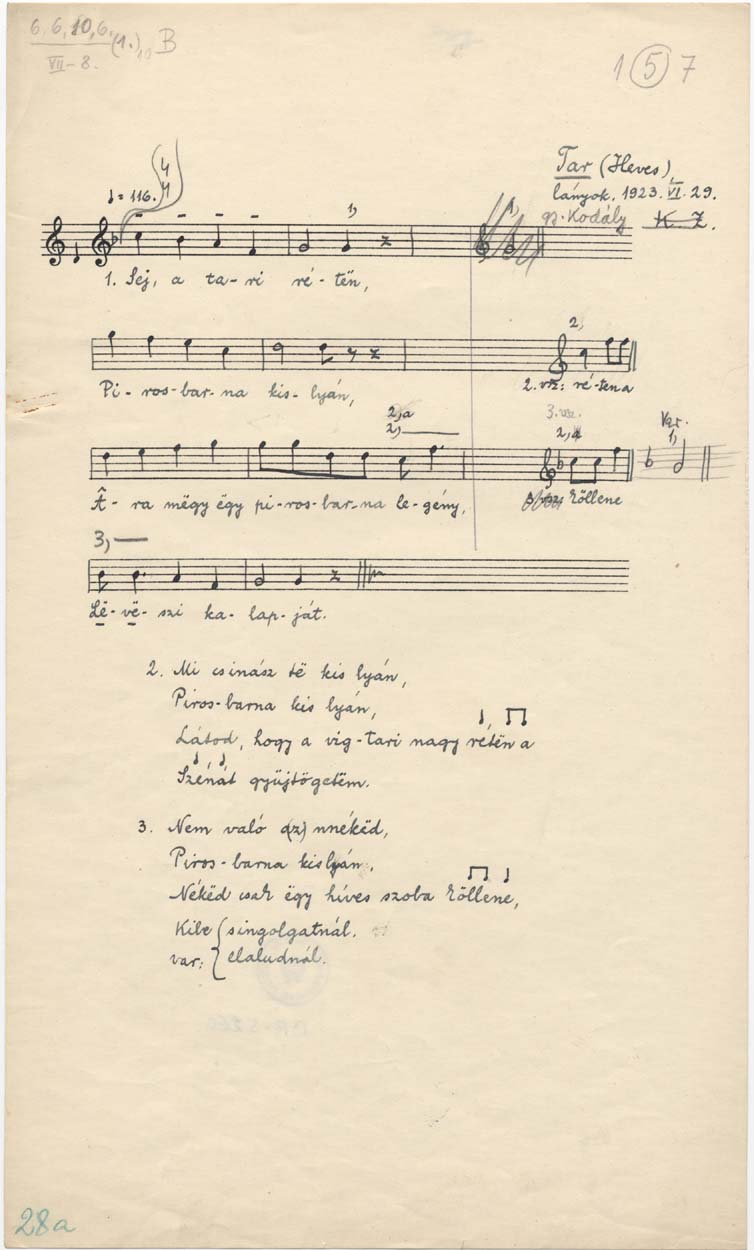 6, 6, 10, 6. (1.) 10 B
VII – 8.
1 5 7
Tar (Heves),
lányok. 1923. VI. 29.
gy. Kodály K. Z.
♩= 116. 4/4
1)
1. Sej, a ta- ri ré- tën,
2,
Pi- ros- bar- na kis- lyán,
2. vrz: ré-ten a
2,a
2,
3. vrz.
2,a
Var. 1,
Â- ra mëgy ëgy pi-ros-bar-na le-gény,
köllene
3,
Lë- vë- szi ka- lap- ját.
2. Mi csinász të kis lyán,
Piros-barna kis lyán,
Látod, hogy a vig-tari nagy rétën a
Szénát gyüjtögetëm.
3. Nem való a(z) nnékëd,
Piros-barna kislyán,
Nékëd csak ëgy híves szoba köllene,
Kibe singolgatnál.
var: elaludnál.
28a